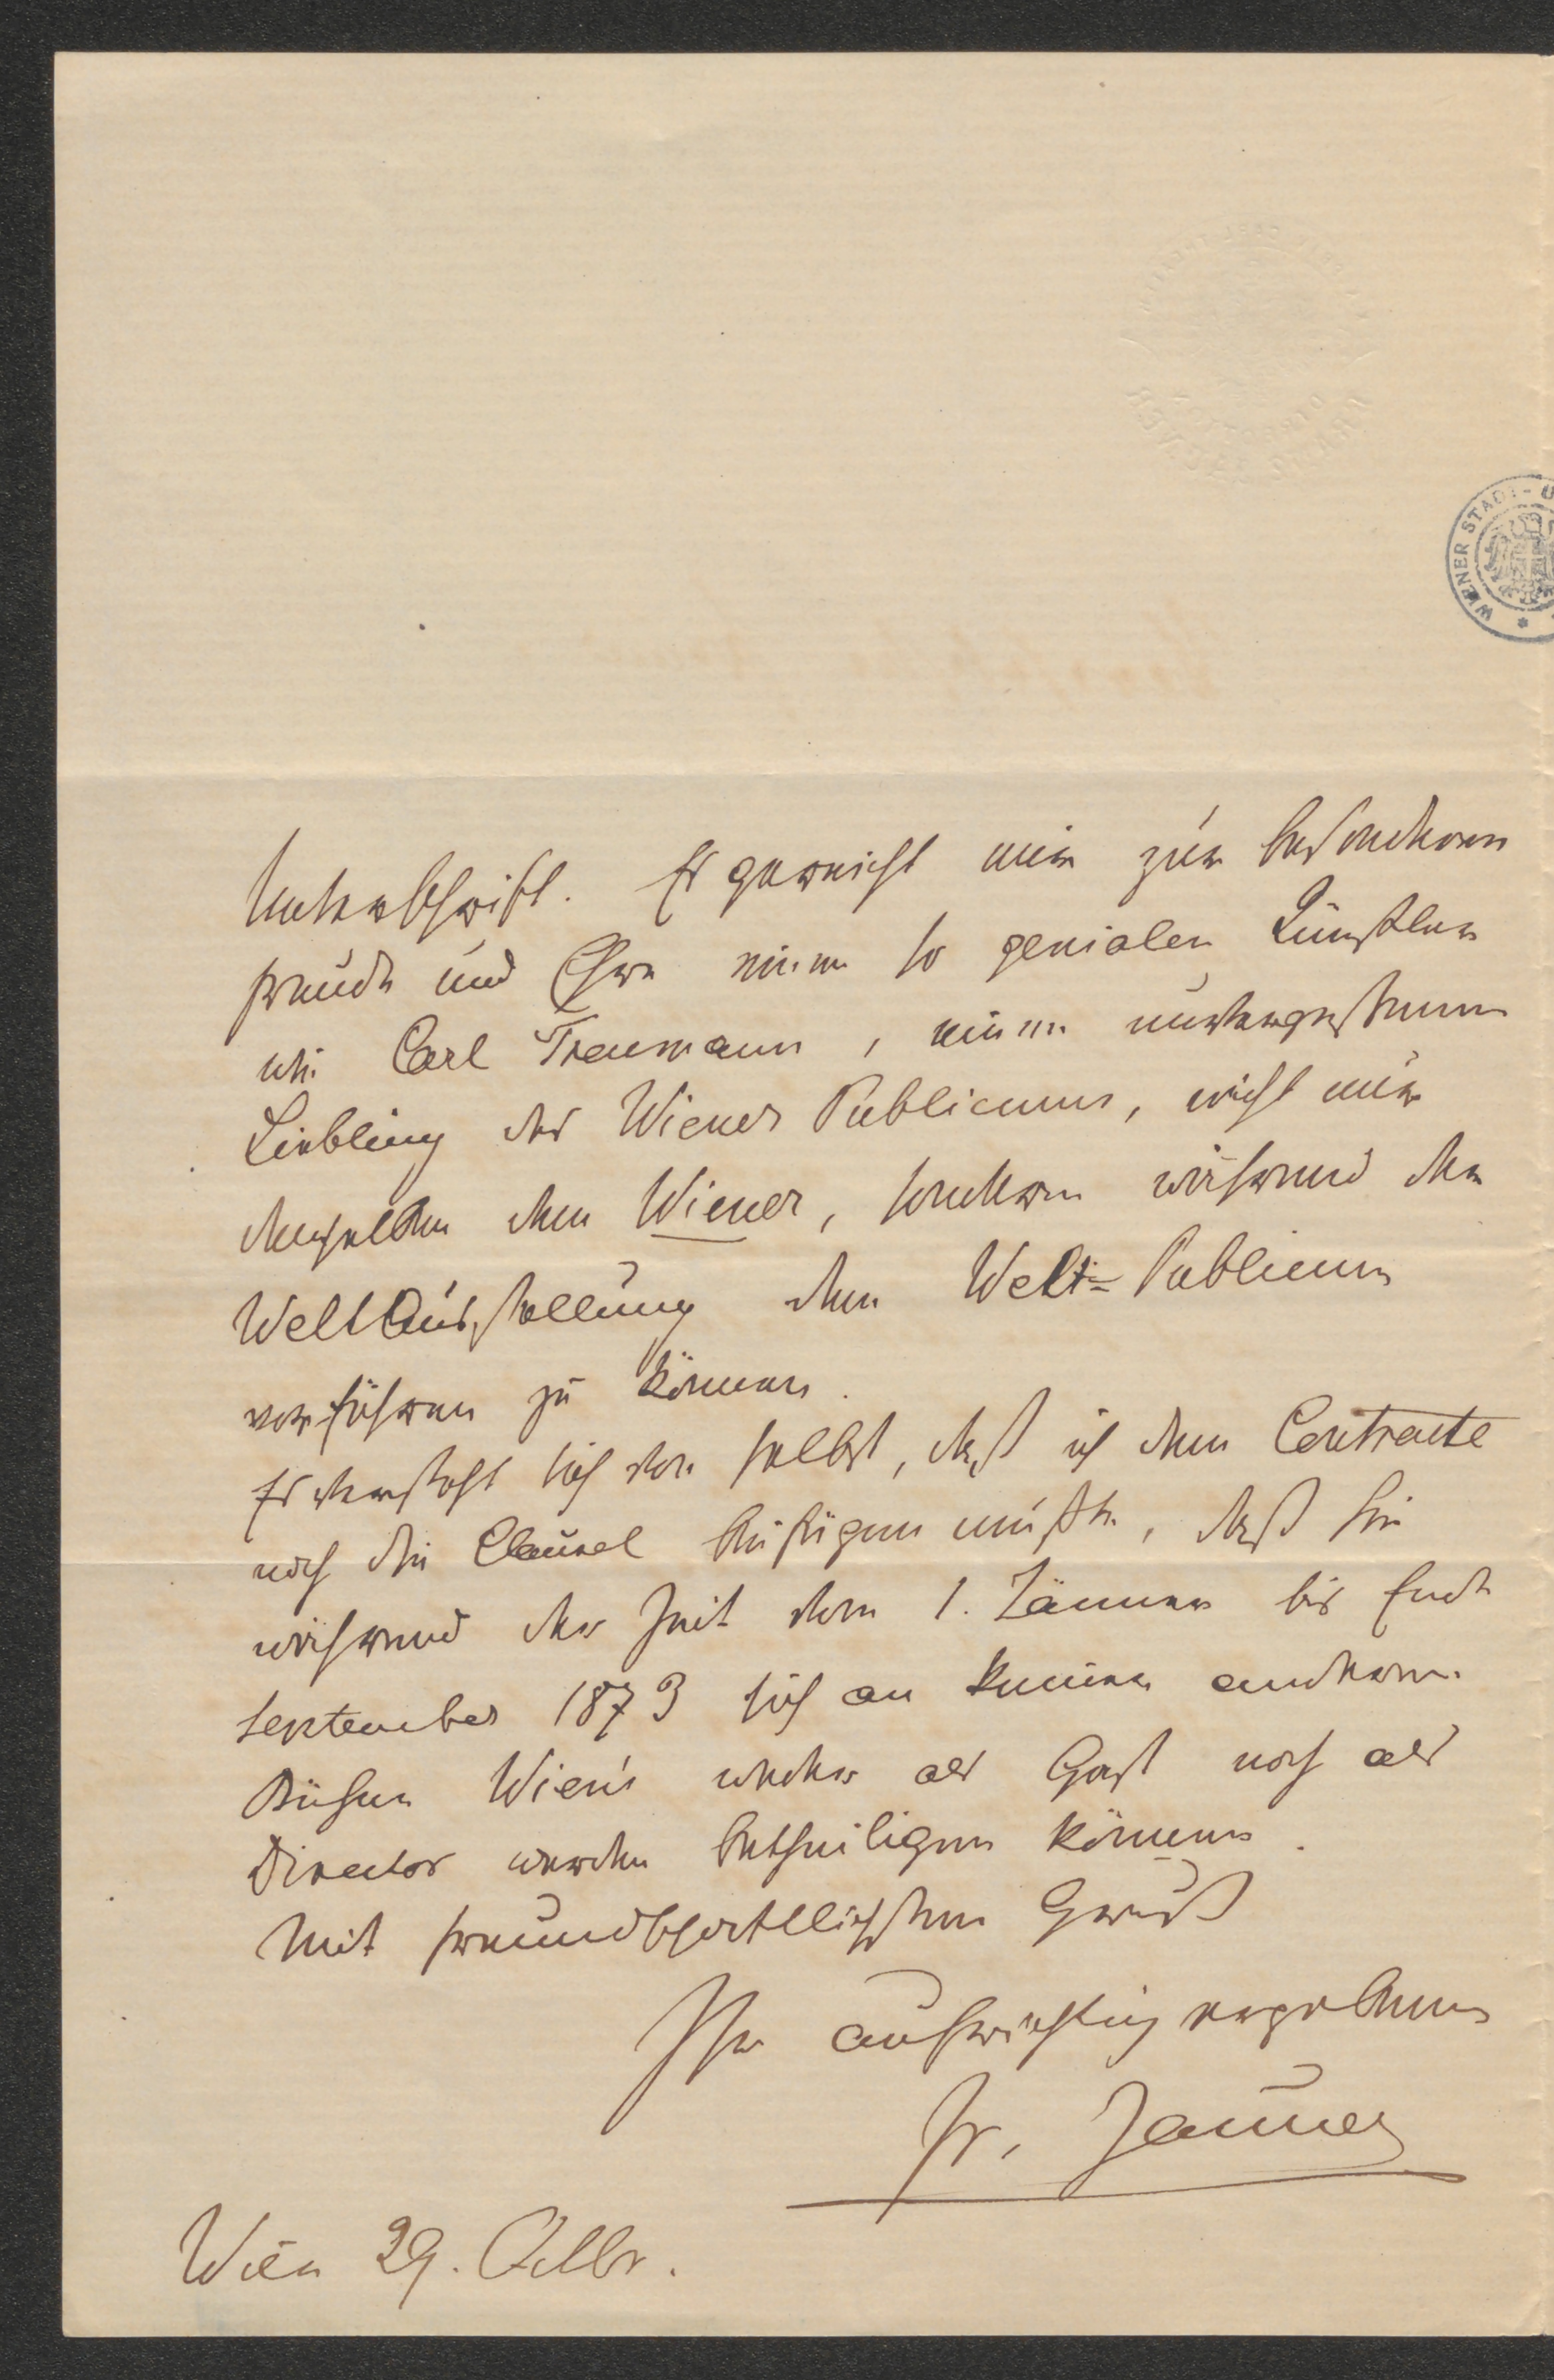 WIENER STADT-
Unterschrift. Es gereicht mir zur besonderen
Freude und Ehre einen so genialen Künstler
wie Carl Treumann, einen unvergessenen
Liebling des Wiener Publicums, nicht nur
denselben dem Wiener, sondern während der
Weltausstellung dem Welt-Publicum
vorführen zu können.
Es versteht sich von selbst, daß ich dem Contracte
noch die Clausel beifügen müßte, daß Sie
während der Zeit vom 1. Jänner bis Ende
September 1873 sich an keiner anderen
Bühne Wien's weder als Gast noch als
Director werden betheiligen können.
Mit freundschaftlichstem Gruß
Ihr aufrichtig ergebener
Fr. Jauner
Wien 29. Octbr.